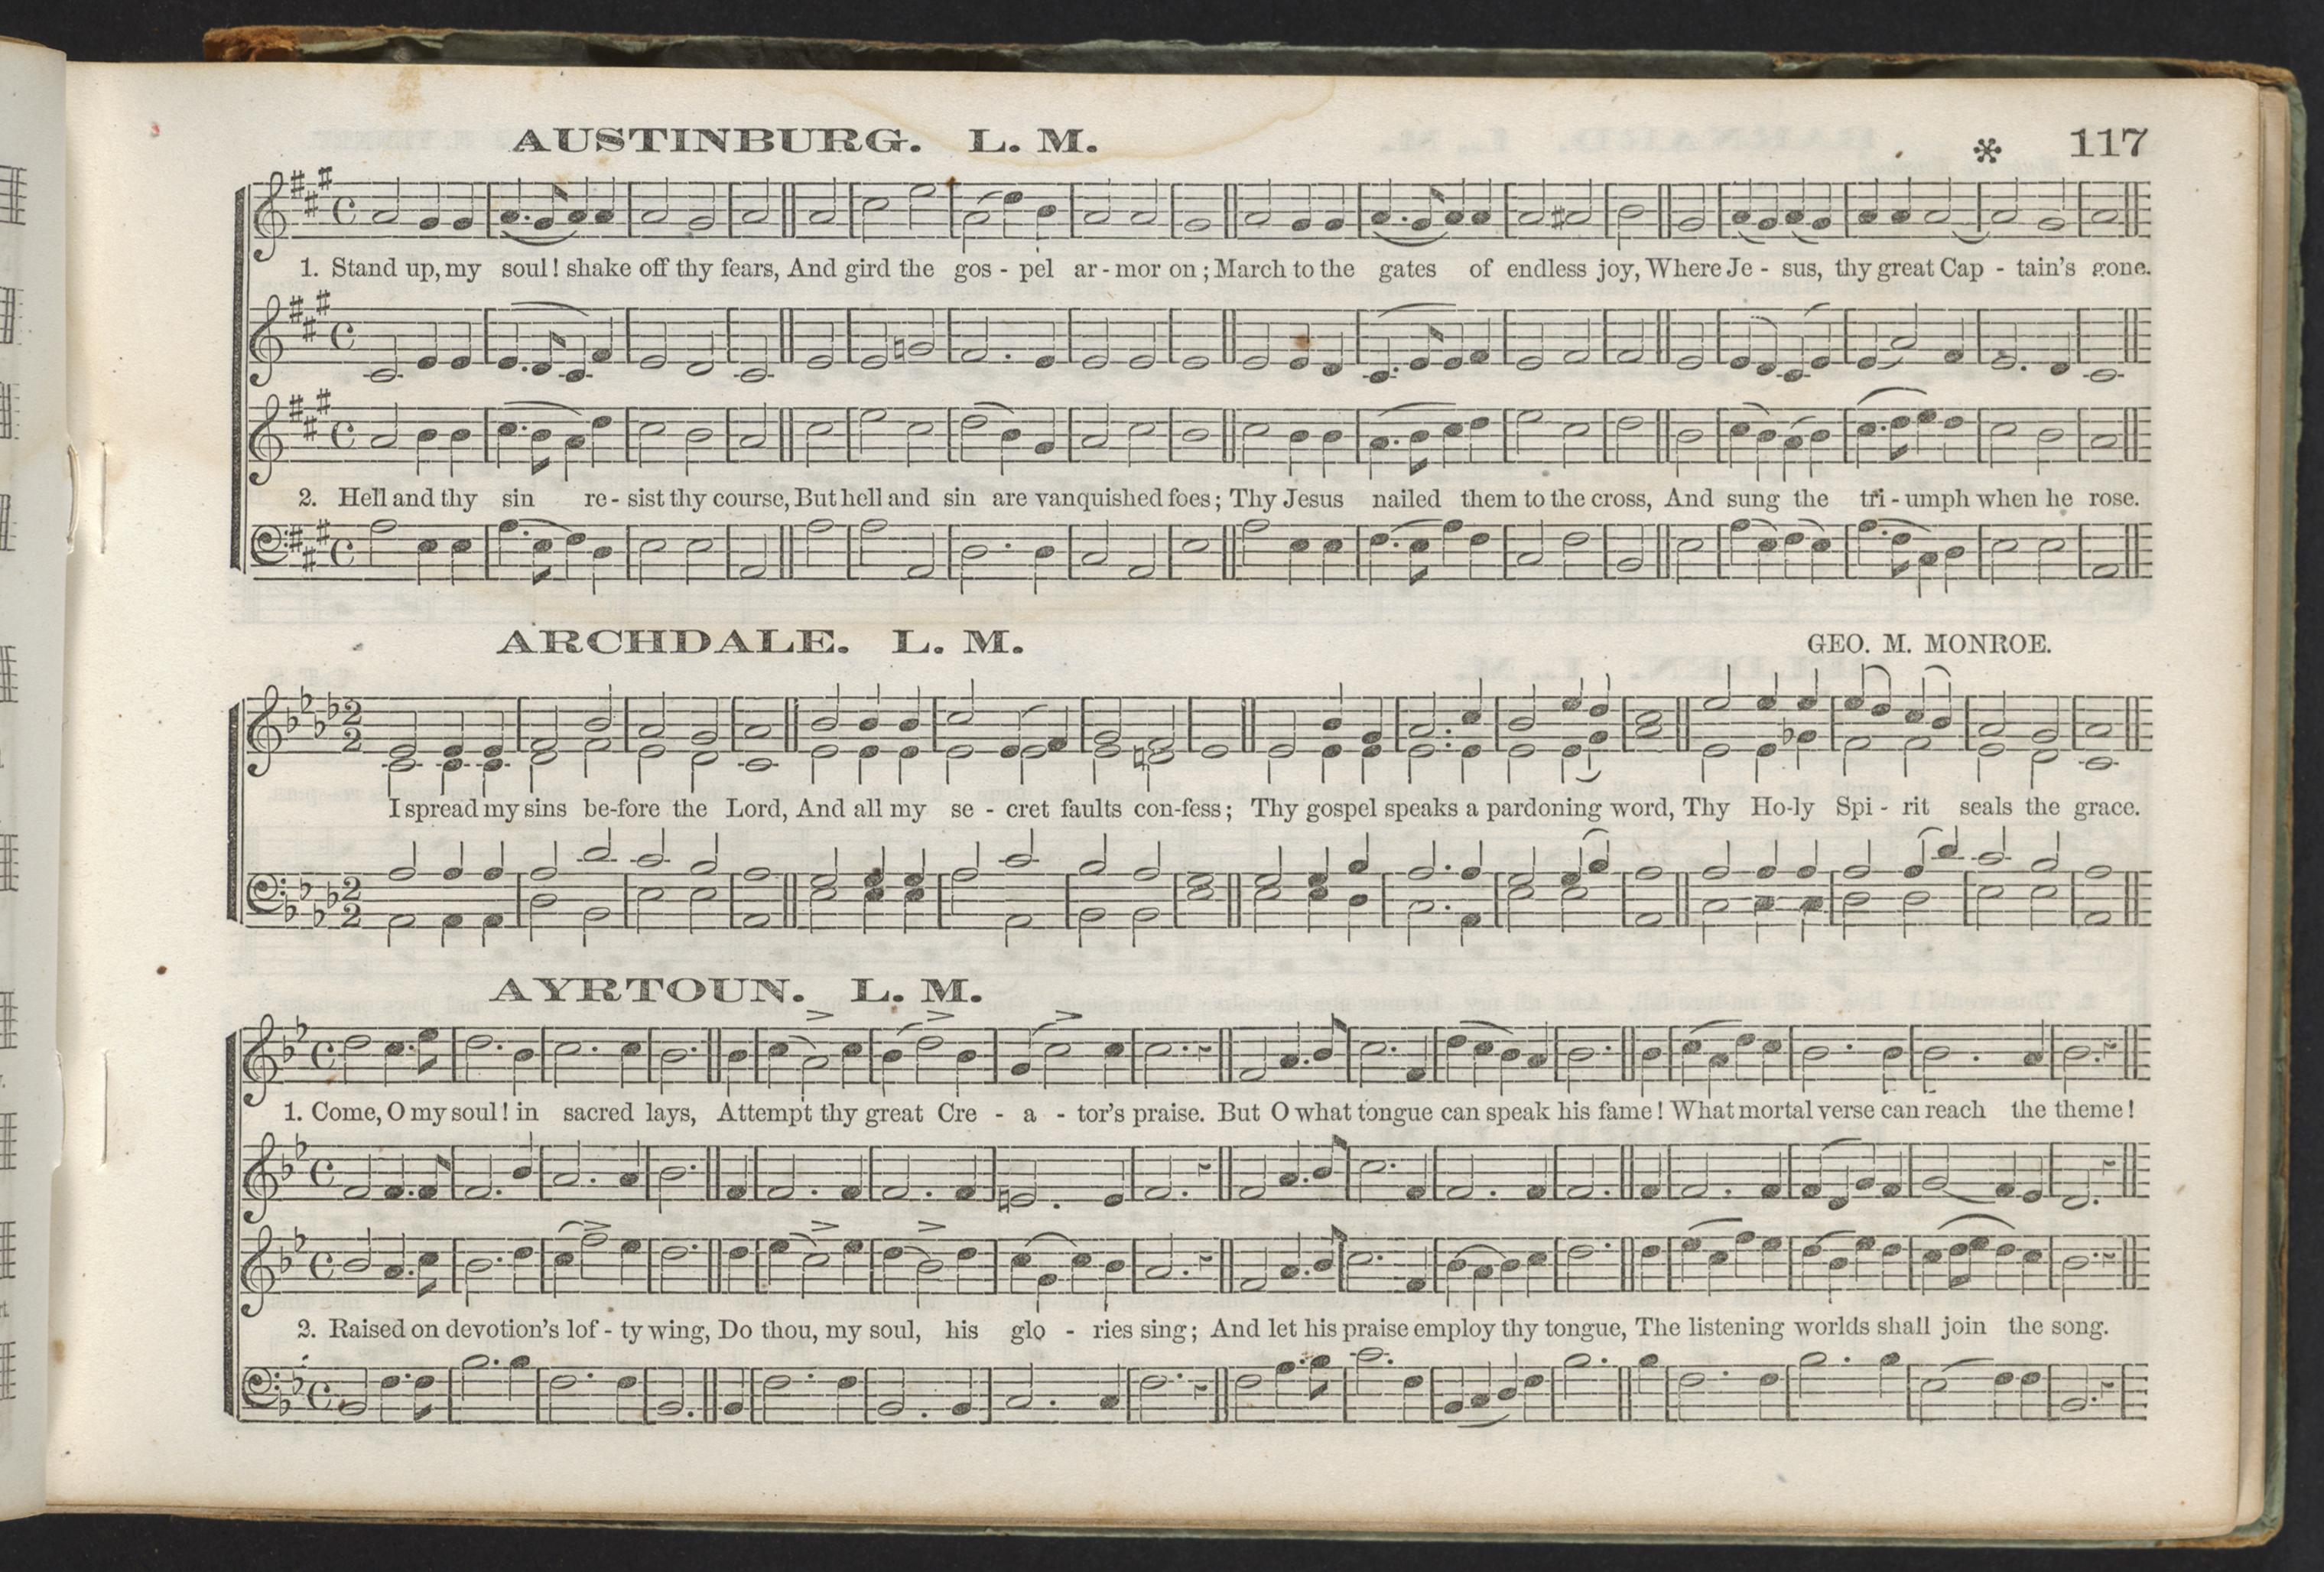 AUSTINBURG. L. M. * 117
1. Stand up, my soul! shake off thy fears, And gird the gos - pel ar - mor on; March to the gates of endless joy, Where Je - sus, thy great Cap - tain's gone.
2. Hell and thy sin re - sist thy course, But hell and sin are vanquished foes; Thy Jesus nailed them to the cross, And sung the tri - umph when he rose.
ARCHDALE. L. M. GEO. M. MONROE.
I spread my sins be-fore the Lord, And all my se - cret faults con-fess; Thy gospel speaks a pardoning word, Thy Ho-ly Spi - rit seals the grace.
AYRTOUN. L. M.
1. Come, O my soul! in sacred lays, Attempt thy great Cre - a - tor's praise. But O what tongue can speak his fame! What mortal verse can reach the theme!
2. Raised on devotion's lof - ty wing, Do thou, my soul, his glo - ries sing; And let his praise employ thy tongue, The listening worlds shall join the song.